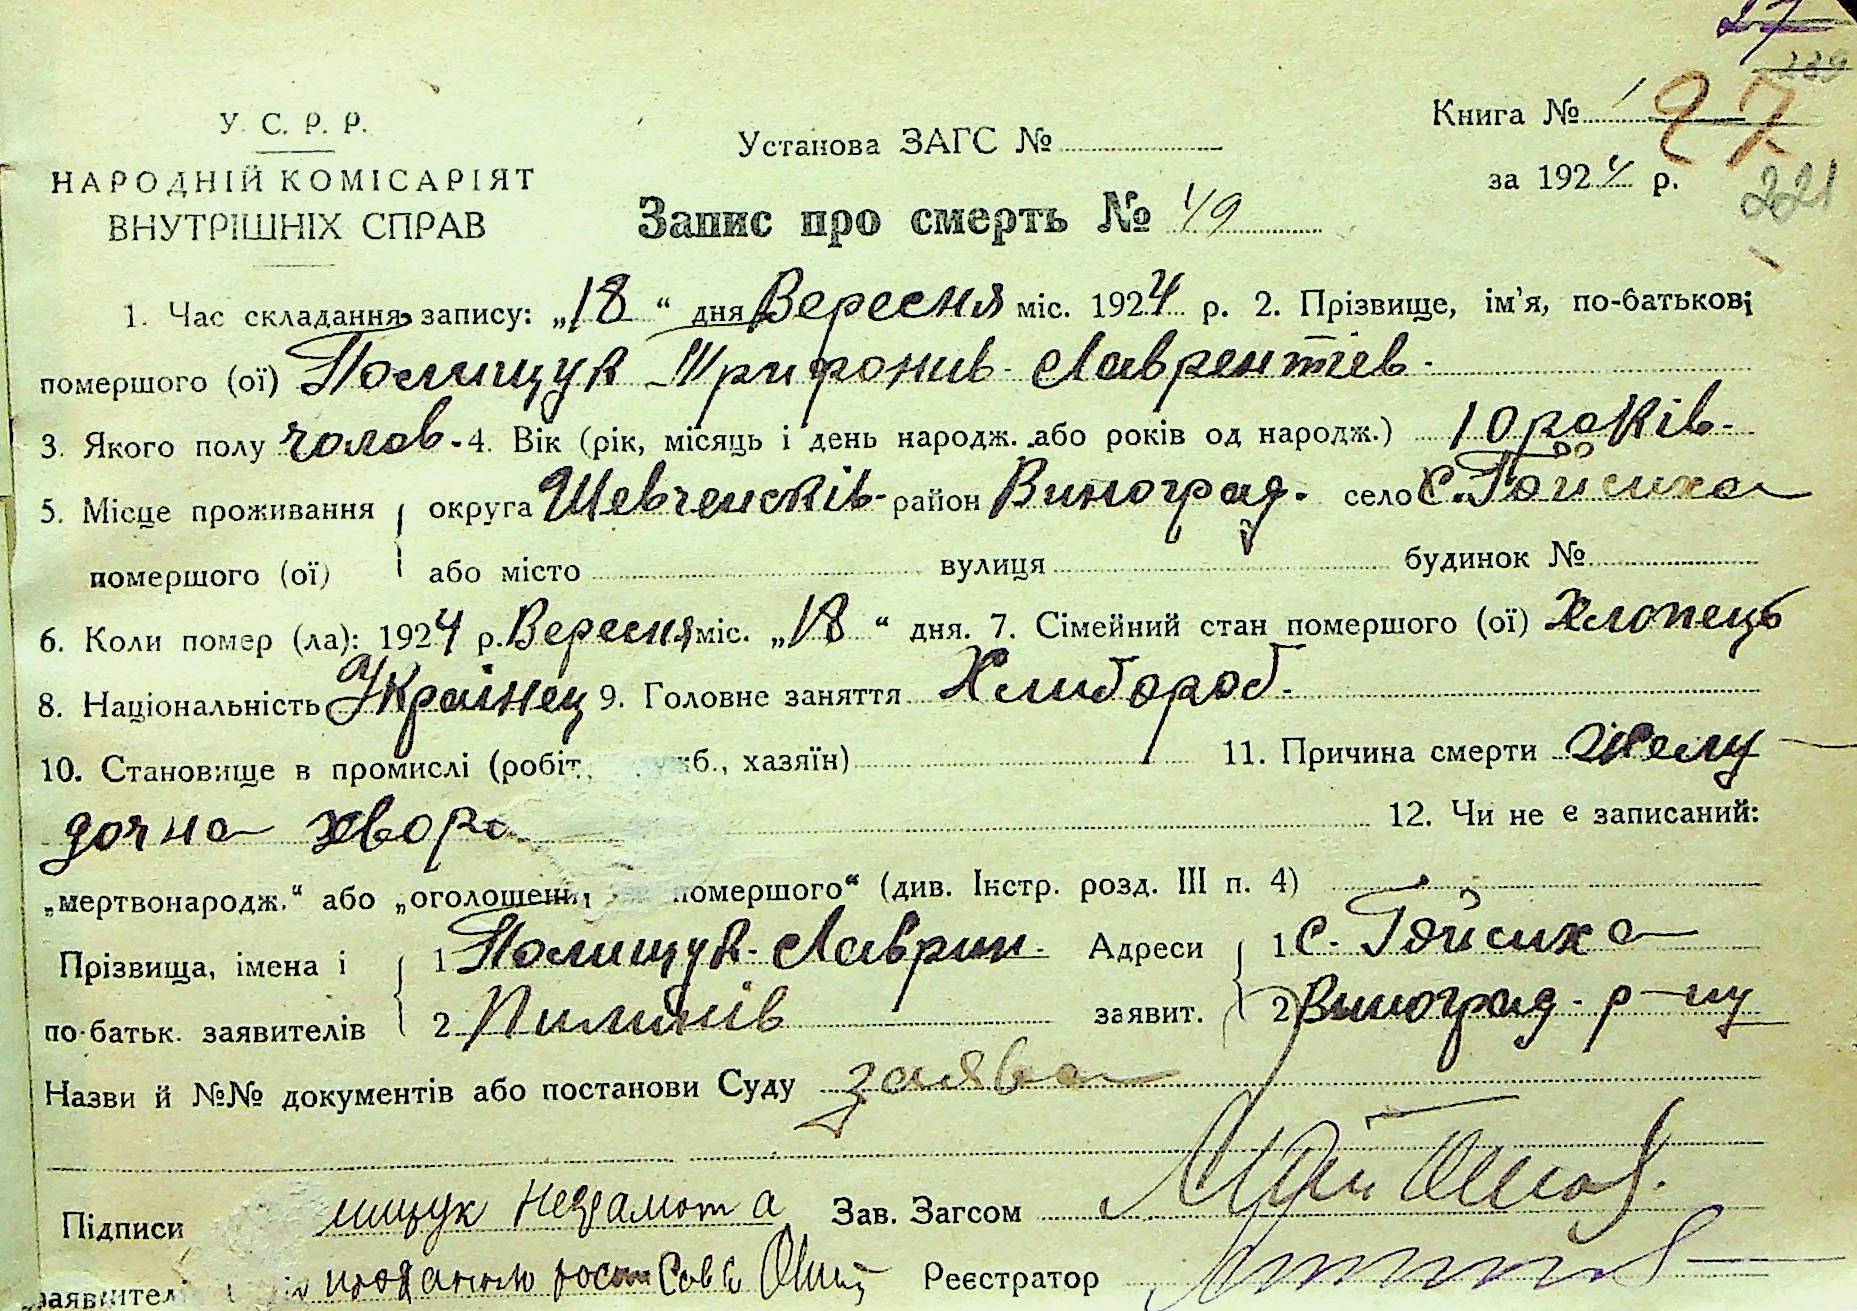 27
239
У. С. Р. Р.
НАРОДНІЙ КОМІСАРІЯТ
ВНУТРІШНІХ СПРАВ
Установа ЗАГС №
Книга № 1 27
за 1924 р.
221
Запис про смерть № 49
1. Час складання запису: „18“ дня Вересня міс. 1924 р. 2. Прізвище, ім’я, по-батькові
помершого (ої) Полищук Трифонив Лаврентіев
3. Якого полу чолов. 4. Вік (рік, місяць і день народж. або років од народж.) 10 років
5. Місце проживання округа Шевченсків район Виноград. село с. Гойсиха
помершого (ої) або місто вулиця будинок №
6. Коли помер (ла): 1924 р. Вересня міс. „18“ дня. 7. Сімейний стан помершого (ої) Хлопець
8. Національність Українец 9. Головне заняття Хлибороб.
10. Становище в промислі (робіт, жб., хазяїн) 11. Причина смерти Желу
дочна хворо
12. Чи не є записаний:
„мертвонародж.“ або „оголошени помершого“ (див. Інстр. розд. III п. 4)
Прізвища, імена і 1 Полищук Лаврин Адреси 1 с. Гойсиха
по-батьк. заявителів 2 Пилипів заявит. 2 Виноград. р-ну
Назви й №№ документів або постанови Суду заява
Підписи лищук неграмота Зав. Загсом
заявителі Реєстратор